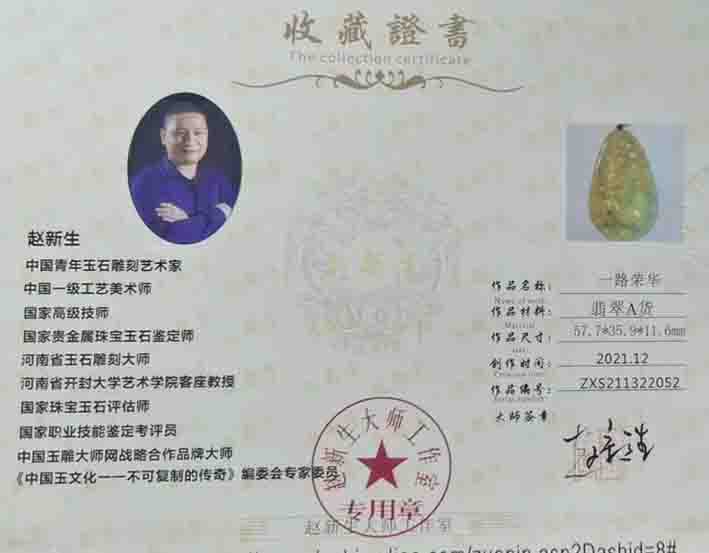 收藏證書
The collection certificate
赵新生
中国青年玉石雕刻艺术家
中国一级工艺美术师
国家高级技师
国家贵金属珠宝玉石鉴定师
河南省玉石雕刻大师
河南省开封大学艺术学院客座教授
国家珠宝玉石评估师
国家职业技能鉴定考评员
中国玉雕大师网战略合作品牌大师
《中国玉文化一一不可复制的传奇》编委会专家委员
作品名称: 一路荣华
Name of work
作品材料: 翡翠A货
Material
作品尺寸: 57.7*35.9*11.6mm
创作时间: 2021.12
作品编号: ZXS211322052
大师签章:
赵新生大师工作室
专用章
赵新生大师工作室